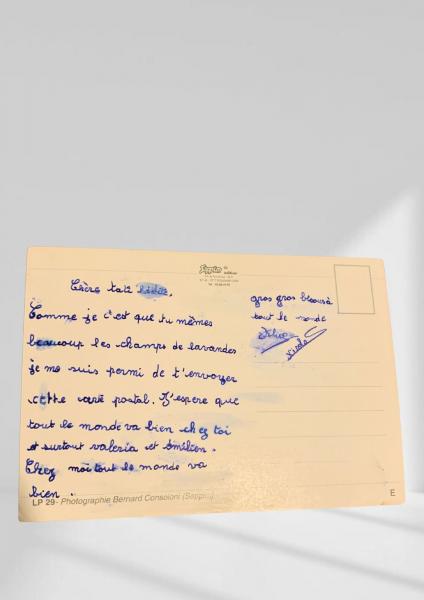 Sappim
Chère tati
Comme je c'est que tu mêmes
beaucoup les champs de lavandes
je me suis permi de t'envoyer
cette carte postal. J'espère que
tout le monde va bien chez toi
et surtout valeria et émilien.
Chez moi tout le monde va
bien.
gros gros bisous à
tout le monde
LP 29 - Photographie Bernard Consoloni (Sappim)
E